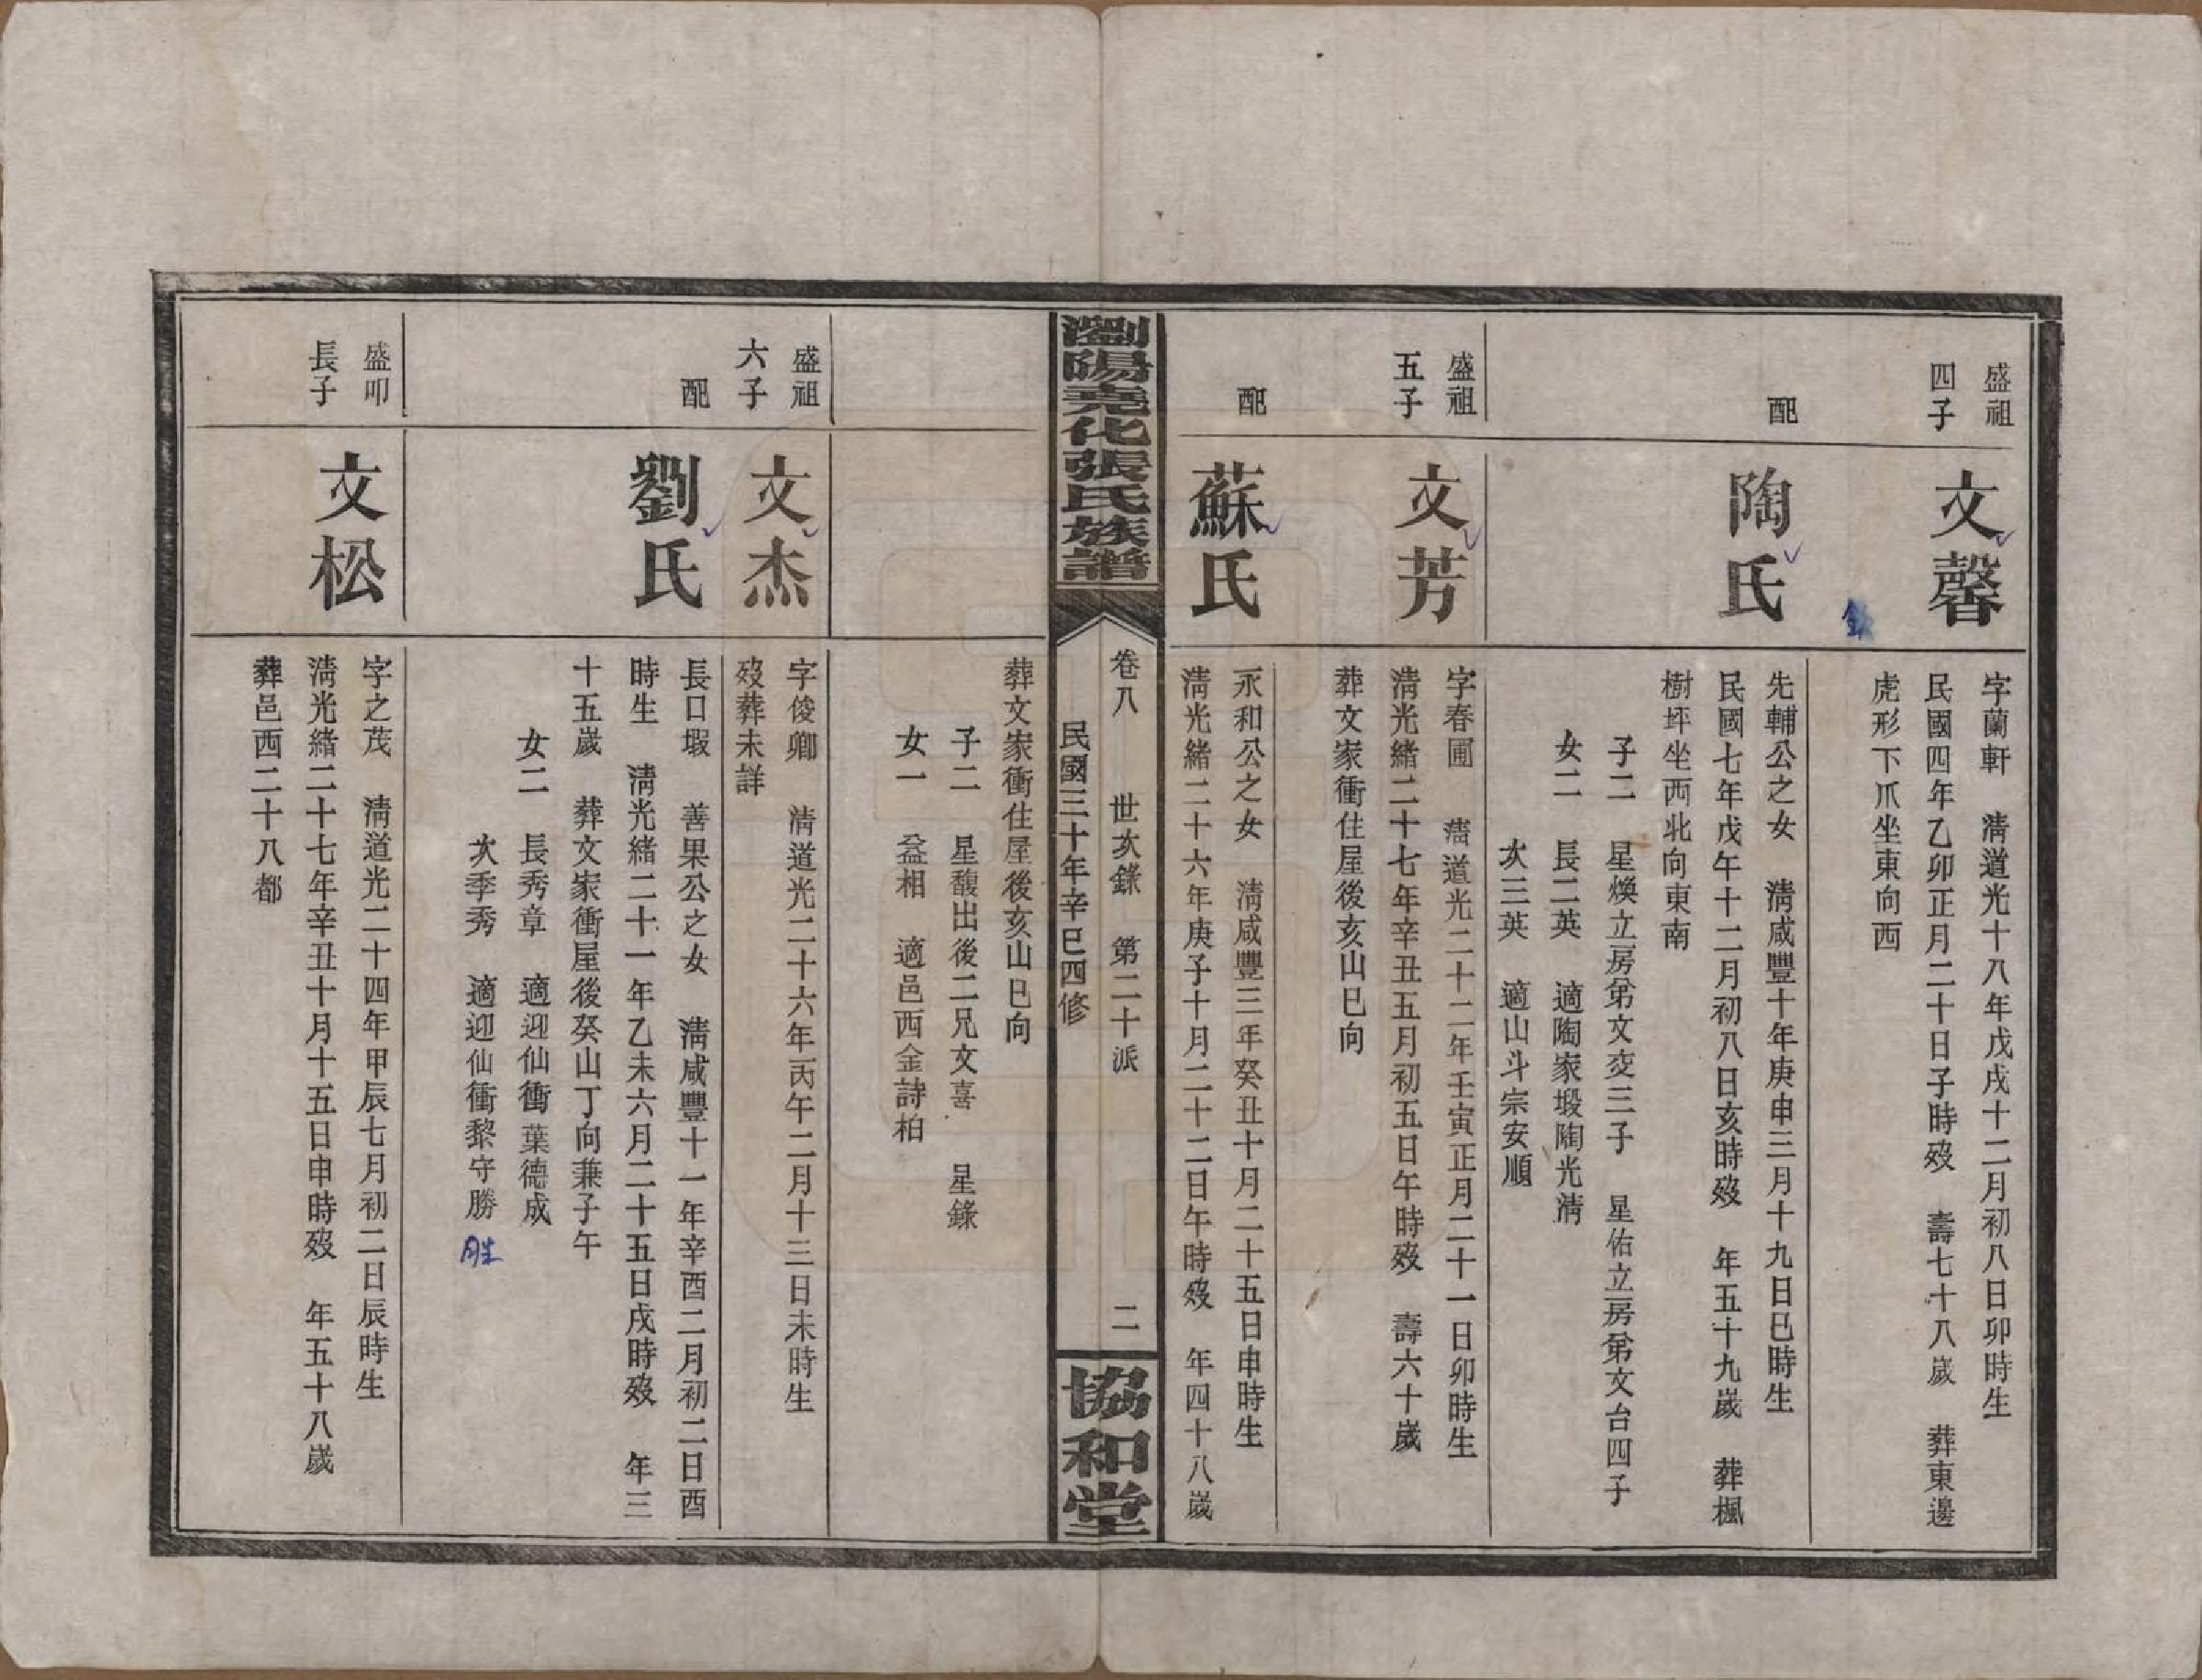 盛祖
四子
文馨
字蘭軒　清道光十八年戊戌十二月初八日卯時生
民國四年乙卯正月二十日子時歿　壽七十八歲　葬東邊
虎形下爪坐東向西
配
陶氏
先輔公之女　清咸豐十年庚申三月十九日巳時生
民國七年戊午十二月初八日亥時歿　年五十九歲　葬楓
樹坪坐西北向東南
子二　星煥立房弟文奕三子　星佑立房弟文台四子
女二　長二英　適陶家塅陶光清
次三英　適山斗宗安順
盛祖
五子
文芳
字春圃　清道光二十二年壬寅正月二十一日卯時生
清光緒二十七年辛丑五月初五日午時歿　壽六十歲
葬文家衝住屋後亥山巳向
配
蘇氏
永和公之女　清咸豐三年癸丑十月二十五日申時生
清光緒二十六年庚子十月二十二日午時歿　年四十八歲
瀏陽堯化張氏族譜
卷八　世次錄　第二十派　二
民國三十年辛巳四修
協和堂
葬文家衝住屋後亥山巳向
子二　星馥出後二兄文喜　星錄
女一　益相　適邑西金詩柏
盛祖
六子
文杰
字俊卿　清道光二十六年丙午二月十三日未時生
歿葬未詳
配
劉氏
長口塅　善果公之女　清咸豐十一年辛酉二月初二日酉
時生　清光緒二十一年乙未六月二十五日戌時歿　年三
十五歲　葬文家衝屋後癸山丁向兼子午
女二　長秀章　適迎仙衝葉德成
次季秀　適迎仙衝黎守勝　胜
盛叩
長子
文松
字之茂　清道光二十四年甲辰七月初二日辰時生
清光緒二十七年辛丑十月十五日申時歿　年五十八歲
葬邑西二十八都